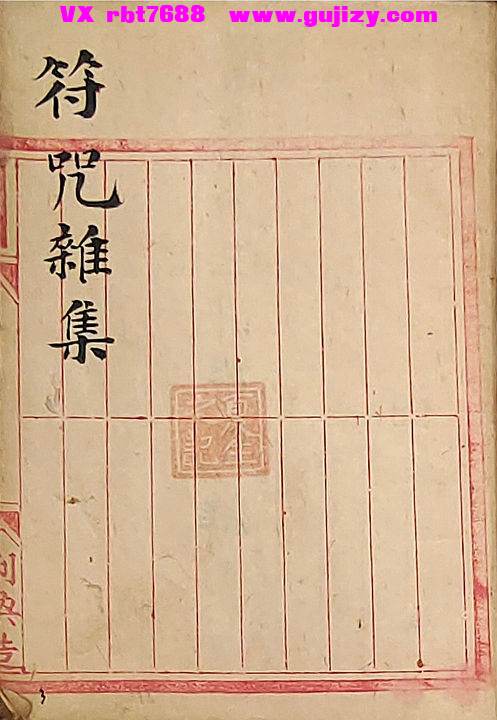 VX rbt7688 www.gujizy.com
符咒雜集